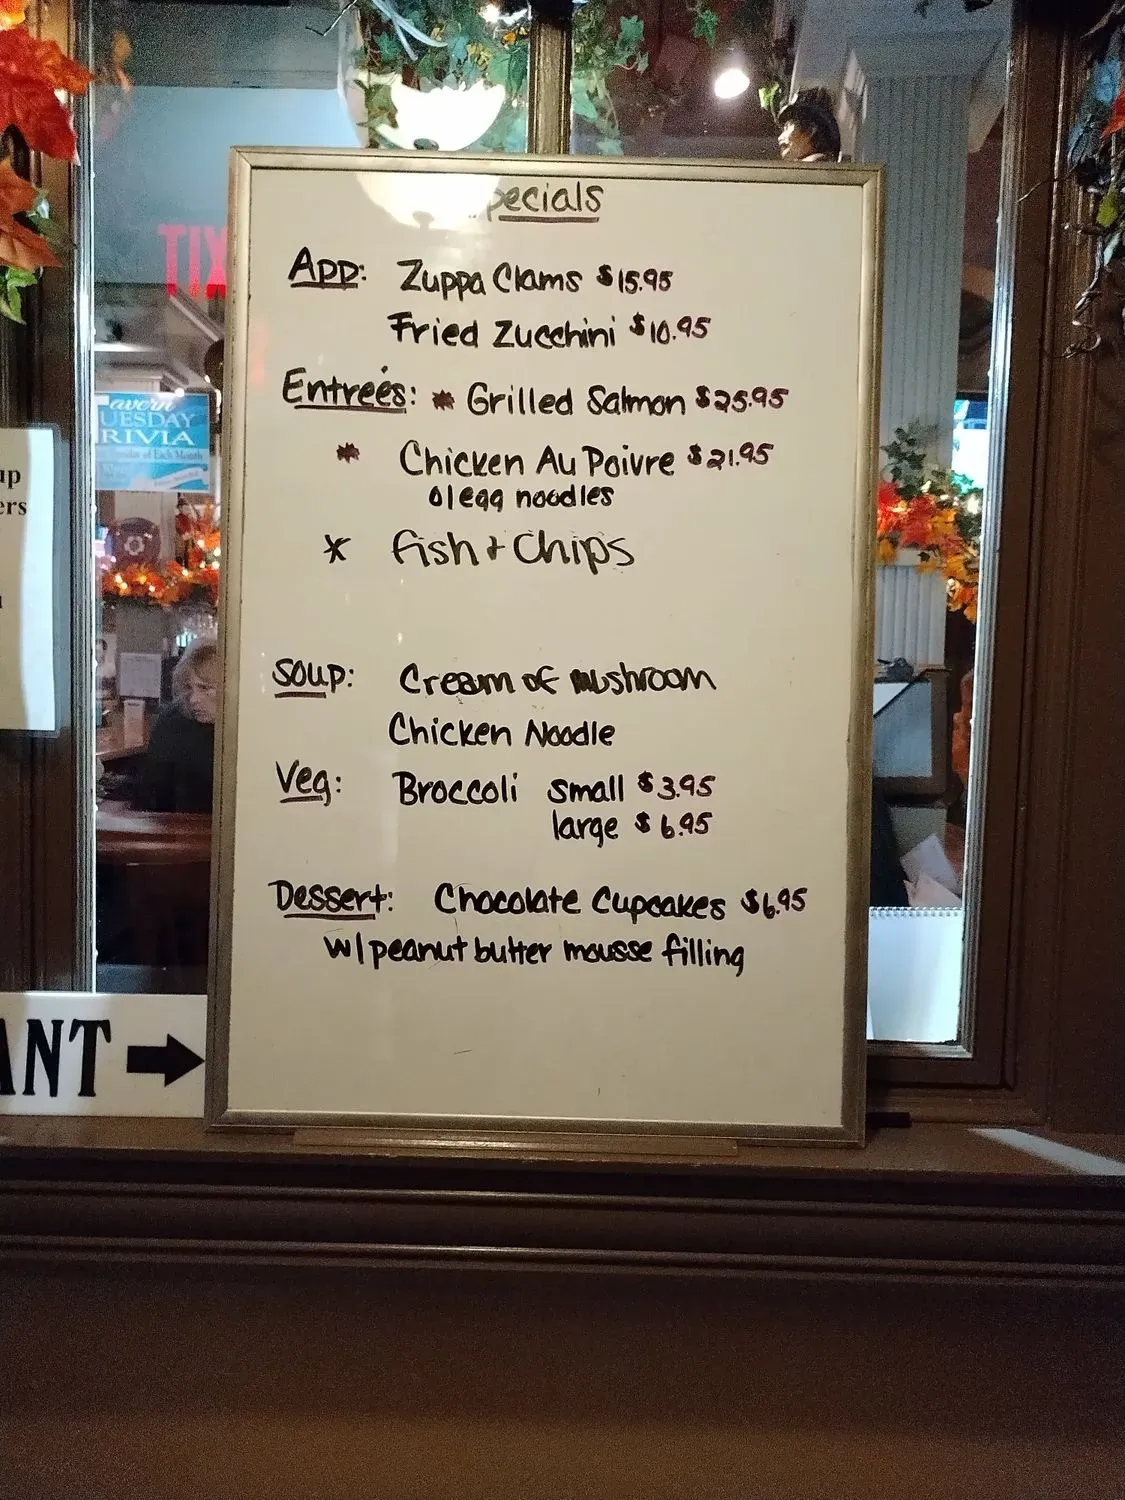 pecials
App: Zuppa Clams $15.95
Fried Zucchini $10.95
Entreés: * Grilled Salmon $25.95
* Chicken Au Poivre $21.95
o/egg noodles
* Fish + Chips
Soup: Cream of mushroom
Chicken Noodle
Veg: Broccoli small $3.95
large $6.95
Dessert: Chocolate Cupcakes $6.95
w/peanut butter mousse filling
TIX
avern
UESDAY
RIVIA
of Each Month
up
ers
ANT →